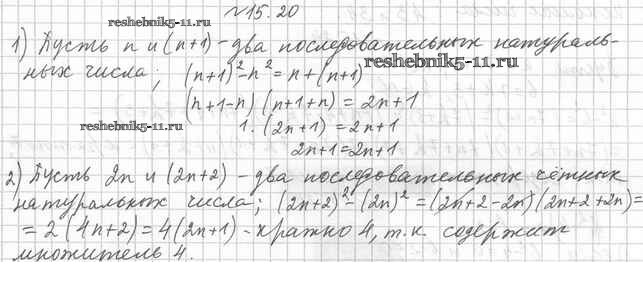 №15.20
reshebnik5-11.ru
1) Пусть n и (n+1) - два последовательных натураль-
ных числа; (n+1)²-n² = n+(n+1)
reshebnik5-11.ru
(n+1-n)(n+1+n) = 2n+1
reshebnik5-11.ru
1·(2n+1) = 2n+1
2n+1=2n+1
2) Пусть 2n и (2n+2) - два последовательных чётных
натуральных числа; (2n+2)²-(2n)² = (2n+2-2n)(2n+2+2n)=
= 2(4n+2) = 4(2n+1) - кратно 4, т.к. содержит
множитель 4.